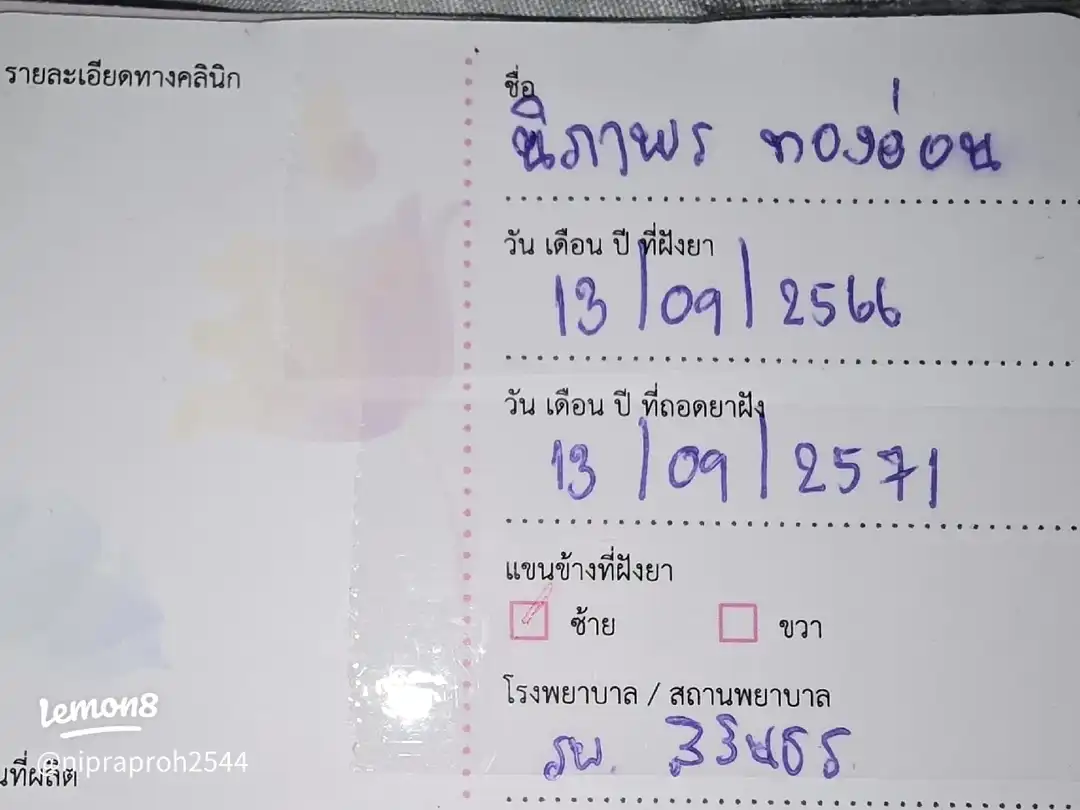 รายละเอียดทางคลินิก
ชื่อ
นิภาพร ทองอ่อน
วัน เดือน ปี ที่ฝังยา
13/09/2566
วัน เดือน ปี ที่ถอดยาฝัง
13/09/2571
แขนข้างที่ฝังยา
ซ้าย
ขวา
โรงพยาบาล / สถานพยาบาล
รพ. สิรินธร
lemon8
@nipraproh2544
ที่ผลิต